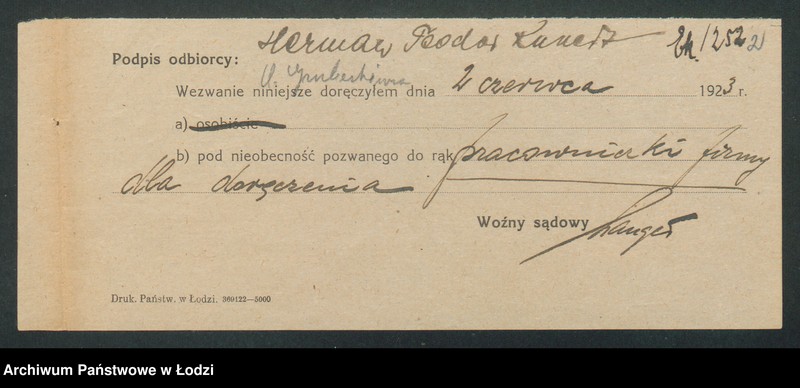 Herman Teodor Kunert Ek. 1252
Podpis odbiorcy:
Wezwanie niniejsze doręczyłem dnia 2 czerwca 1923 r.
a) osobiście
b) pod nieobecność pozwanego do rąk pracowniczki firmy
dla doręczenia
Woźny sądowy Langer
Druk. Państw. w Łodzi. 369122—5000
Archiwum Państwowe w Łodzi